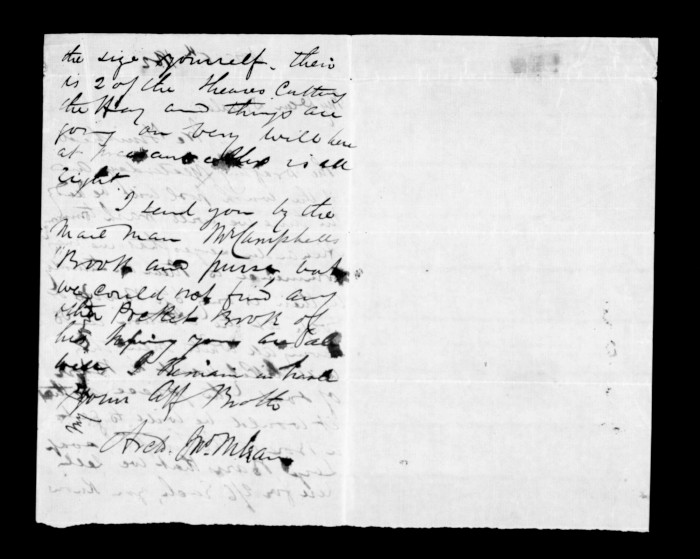 the size of yourself. their
is 2 of the Sheares Cutting
the Hay and things are
going on very well here
at present Alex is all
right.
I send you by the
Mail Man Mr Campbells
Book and purse but
we could not find any
other Pocket Book of
his hoping you are all
well I Remain in haste
Your Aff Broth
Archd. Jno. McLean